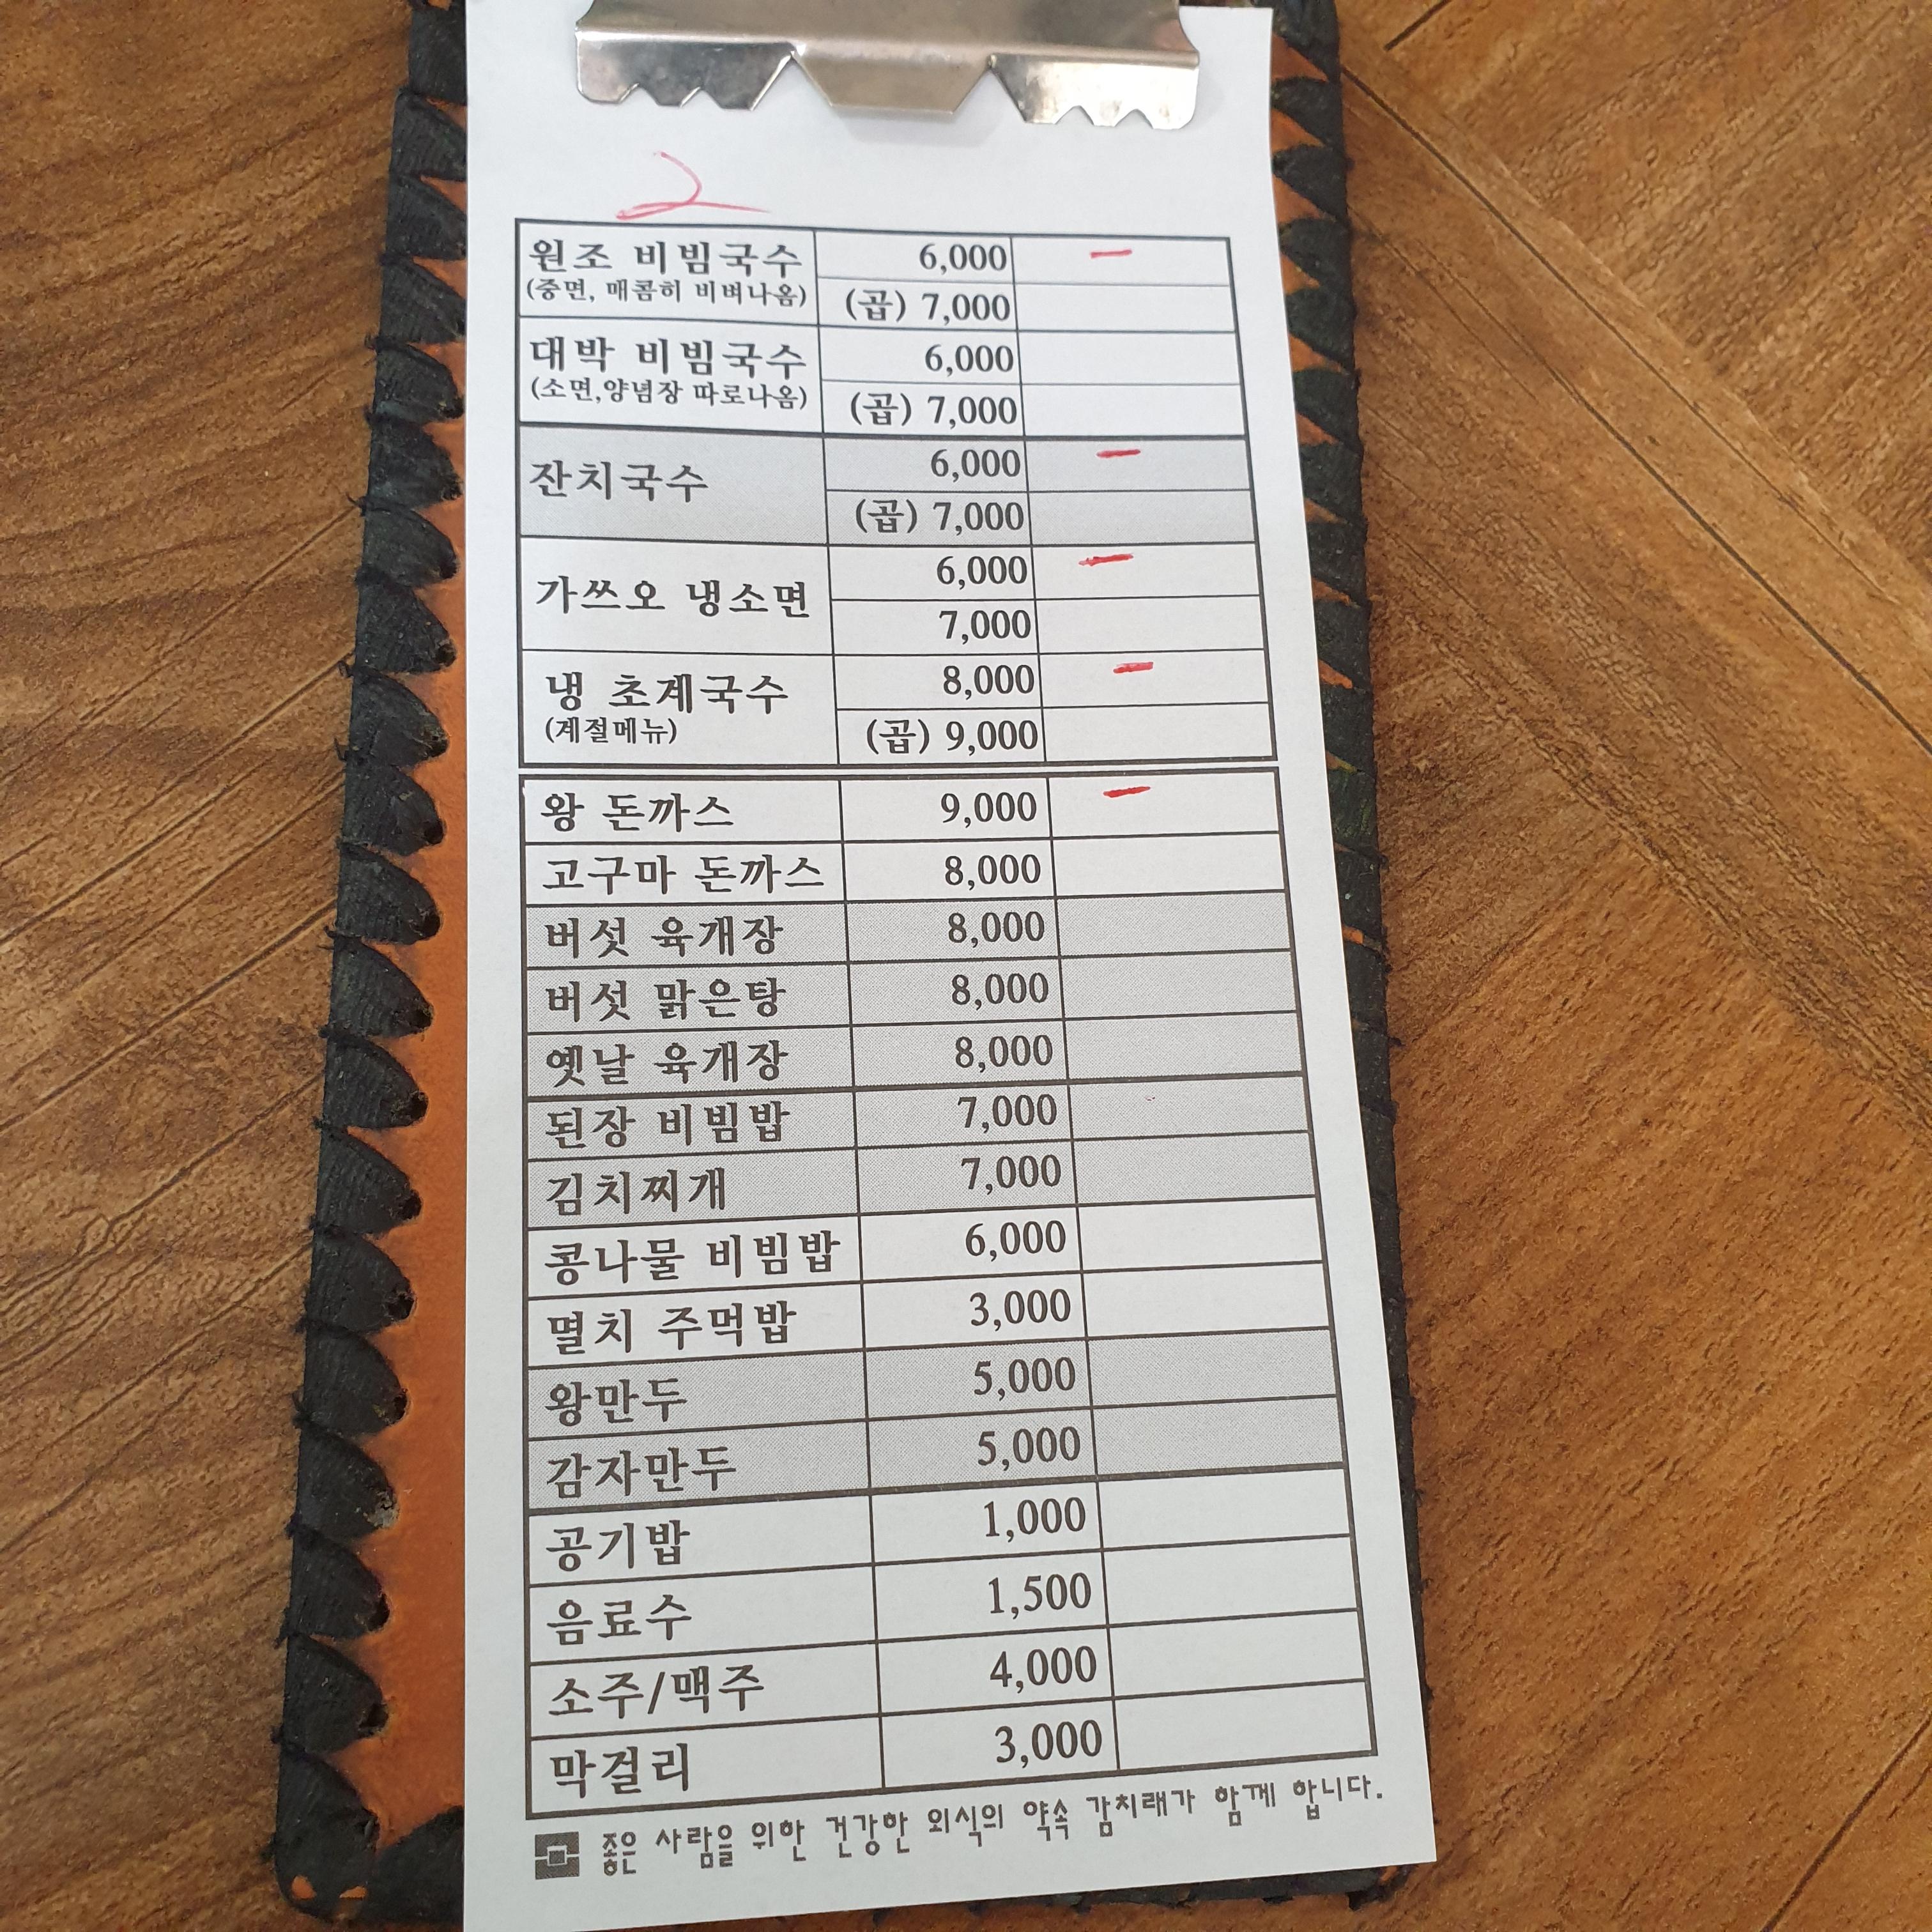 2
원조 비빔국수 6,000 -
(중면, 매콤히 비벼나옴) (곱) 7,000
대박 비빔국수 6,000
(소면,양념장 따로나옴) (곱) 7,000
잔치국수 6,000 -
(곱) 7,000
가쓰오 냉소면 6,000 -
7,000
냉 초계국수 8,000 -
(계절메뉴) (곱) 9,000
왕 돈까스 9,000 -
고구마 돈까스 8,000
버섯 육개장 8,000
버섯 맑은탕 8,000
옛날 육개장 8,000
된장 비빔밥 7,000
김치찌개 7,000
콩나물 비빔밥 6,000
멸치 주먹밥 3,000
왕만두 5,000
감자만두 5,000
공기밥 1,000
음료수 1,500
소주/맥주 4,000
막걸리 3,000
좋은 사람을 위한 건강한 외식의 약속 감치래가 함께 합니다.